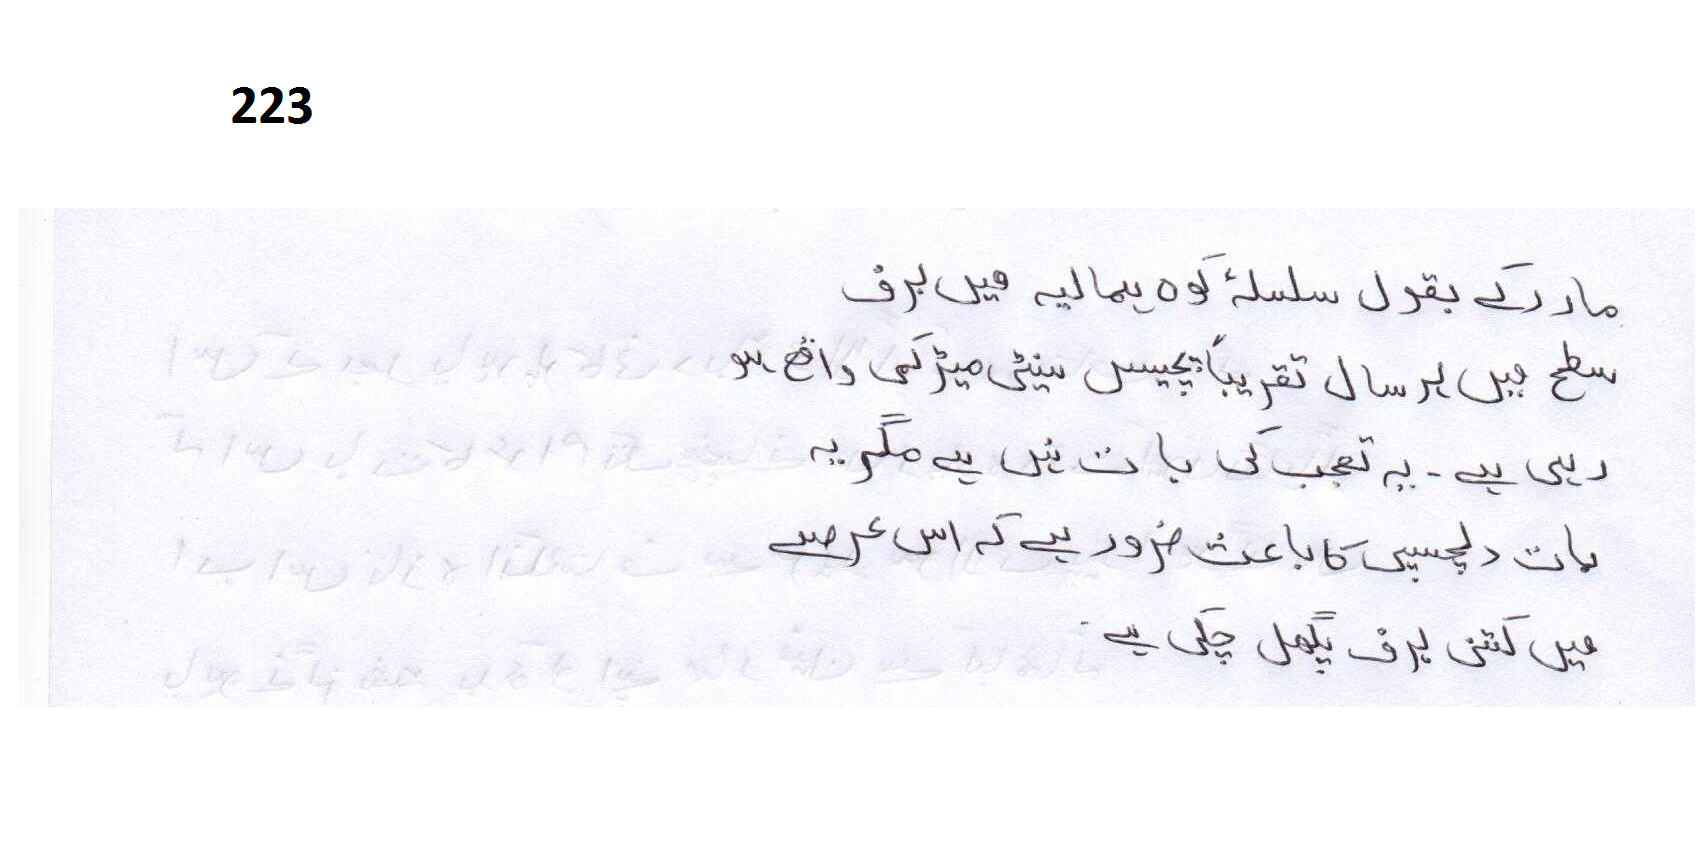 223
مادر کے بقول سلسلۂ کوہ ہمالیہ میں برف
سطح میں ہر سال تقریباً پچیس سینٹی میڑ کمی واقع ہو
رہی ہے ۔ یہ تعجب کی بات نہیں ہے مگر یہ
بات دلچسپی کا باعث ضرور ہے کہ اس عرصے
میں کتنی برف پگھل چکی ہے